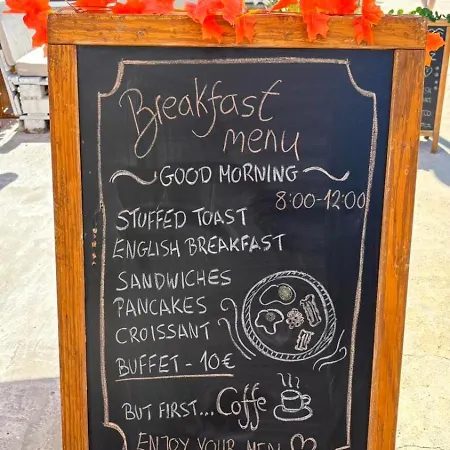 Breakfast
menu
GOOD MORNING
8:00-12:00
STUFFED TOAST
ENGLISH BREAKFAST
SANDWICHES
PANCAKES
CROISSANT
BUFFET - 10€
BUT FIRST... Coffe
ENJOY YOUR